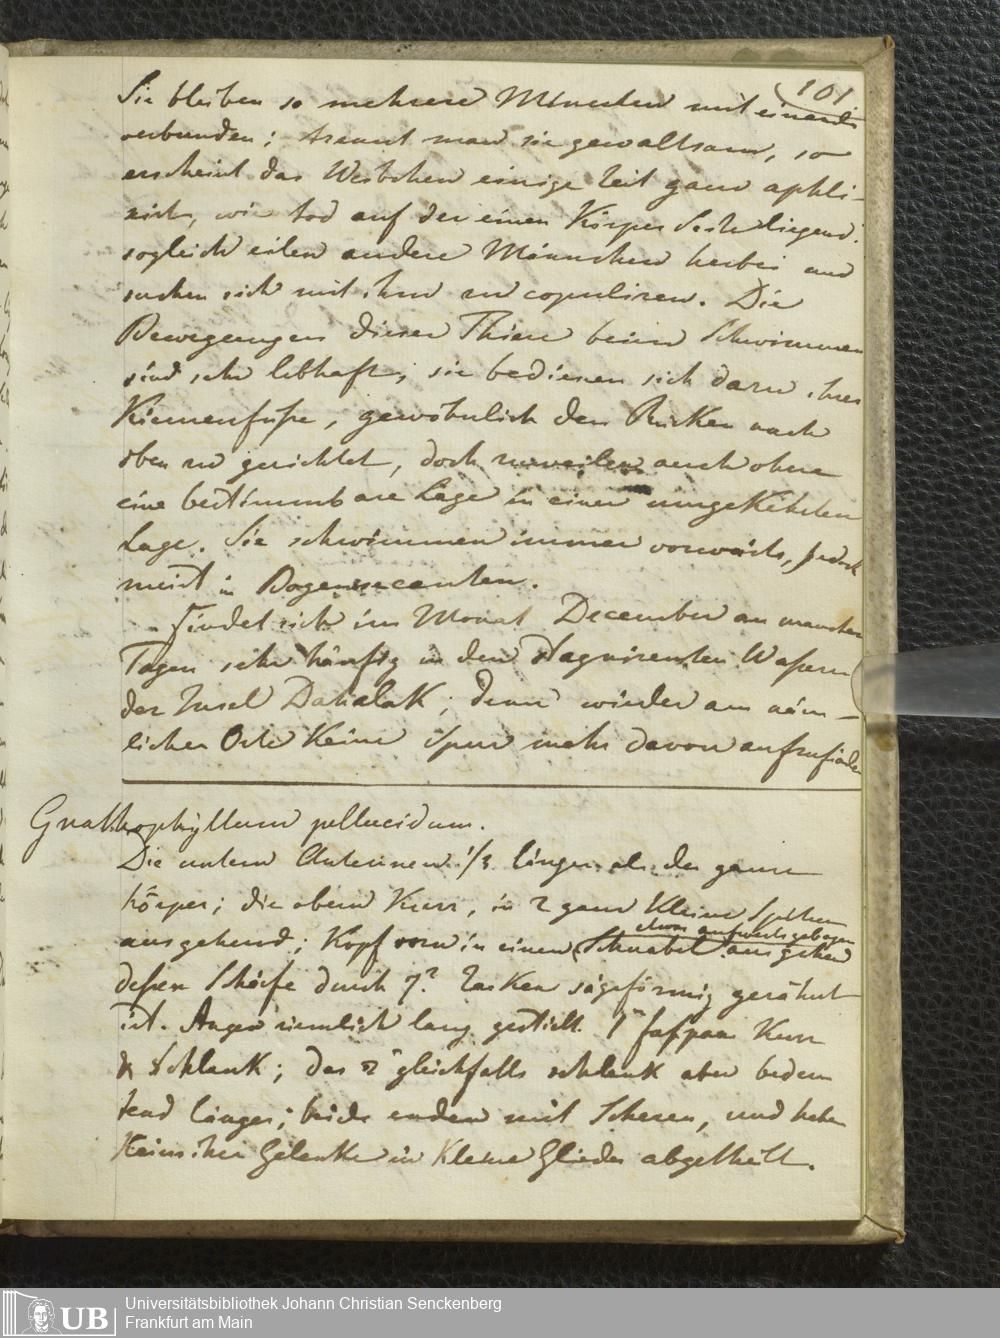 101
Sie bleiben so mehrere Minuten mit einander
verbunden; trennt man sie gewaltsam, so
erscheint das Weibchen einige Zeit ganz
wie tod auf der einen Körper Seite liegend.
sogleich eilen andere Männchen herbei und
suchen sich mit ihm zu copuliren. Die
Bewegungen dieser Thiere beim Schwimmen
sind sehr lebhaft, sie bedienen sich dazu ihrer
Kiemenfüße, gewöhnlich den Rücken nach
oben zu gerichtet, doch zuweilen auch ohne
eine bestimmbare Lage in einer umgekehrten
Lage. Sie schwimmen immer vorwärts, jedoch
meist in
Findet sich im Monat December an manchen
Tagen sehr häufig in den stagnirenden Wassern
der Insel Dahalak, dann wieder am näm-
lichen Orte keine Spur mehr davon aufzufinden
Gnathophyllum pellucidum.
Die untern Antennen 1/3 länger als der ganze
Körper; die obern kurz, in 2 ganz kleine Spitzen
etwas aufwerts gebogen
ausgehend; Kopf vorn in einen Schnabel ausgehend
dessen Schärfe durch 7? Zacken sägeförmig gezähnt
ist. Augen ziemlich lang gestielt. 1 Fußpaar kurz
& schlank; das 2 gleichfalls schlank aber bedeu
tend länger; beide enden mit Scheren, und haben
keins ihrer Gelenke in kleine Glieder abgetheilt.
UB Universitätsbibliothek Johann Christian Senckenberg
Frankfurt am Main